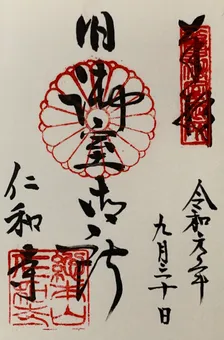 奉拝
令和元年
九月三十日
旧御室御所
仁和寺